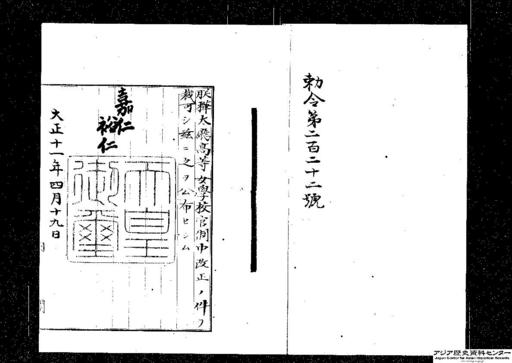 勅令第二百二十二號
朕樺太廳高等女學校官制中改正ノ件ヲ
裁可シ玆ニ之ヲ公布セシム
嘉仁
裕仁
天皇
御璽
大正十一年四月十九日
アジア歴史資料センター
Japan Center for Asian Historical Records